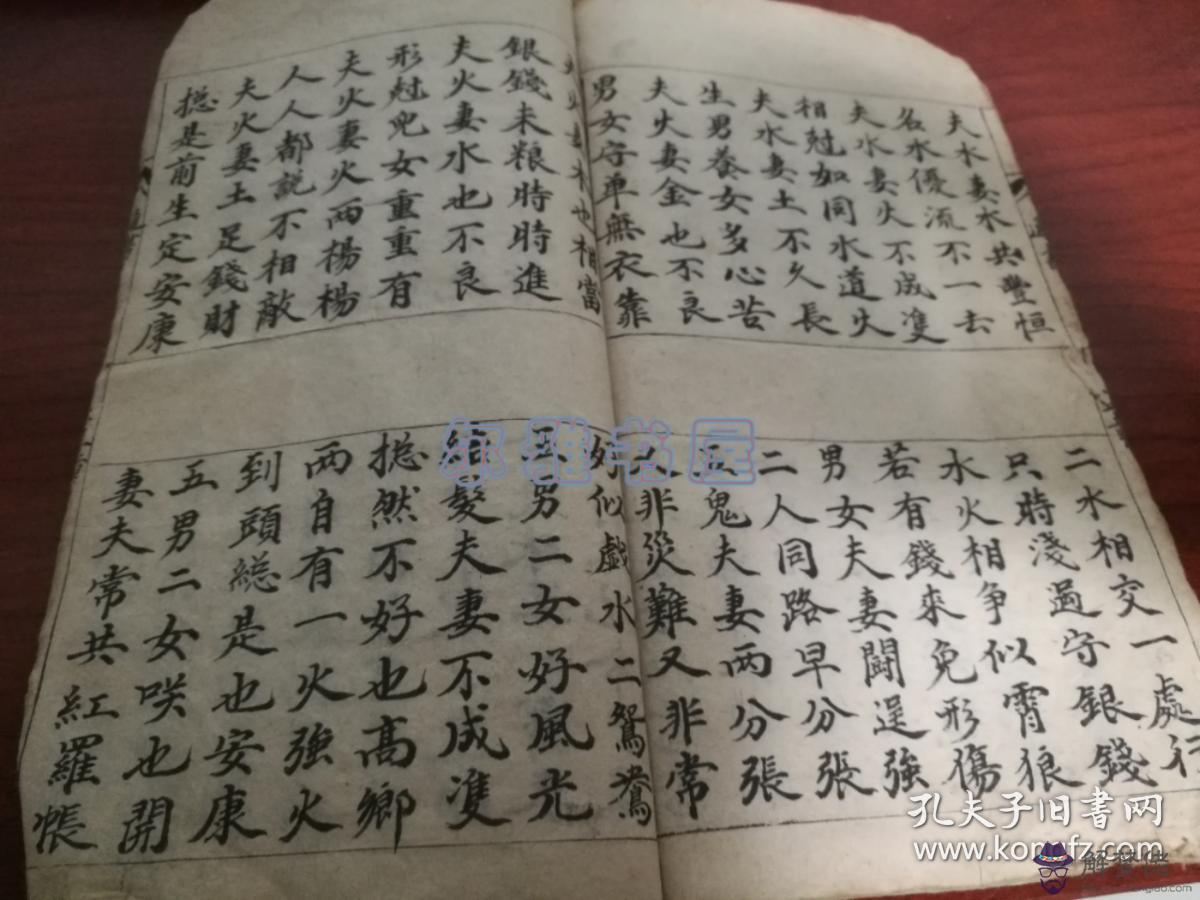 夫水妻水共豐恒
名水優流不一去
夫水妻火不成雙
相尅如同水道火
夫水妻土不久長
生男養女多心苦
夫火妻金也不良
男女守單無衣靠
夫火妻木也相當
銀錢米粮時時進
夫火妻水也不良
形尅兒女重重有
夫火妻火兩楊楊
人人都説不相敵
夫火妻土足錢財
搃是前生定安康
二水相交一處行
只時淺過守銀錢
水火相争似霄狼
若有錢來免形傷
男女夫妻鬪逞強
二人同路早分張
五鬼夫妻兩分張
非災難又非常
好似戲水二鴛鴦
五男二女好風光
結髮夫妻不成雙
搃然不好也高鄉
兩自有一火強火
到頭緫是也安康
五男二女咲也開
妻夫常共紅羅帳
尔雅书屋
孔夫子旧书网
www.kongfz.com
解梦佬